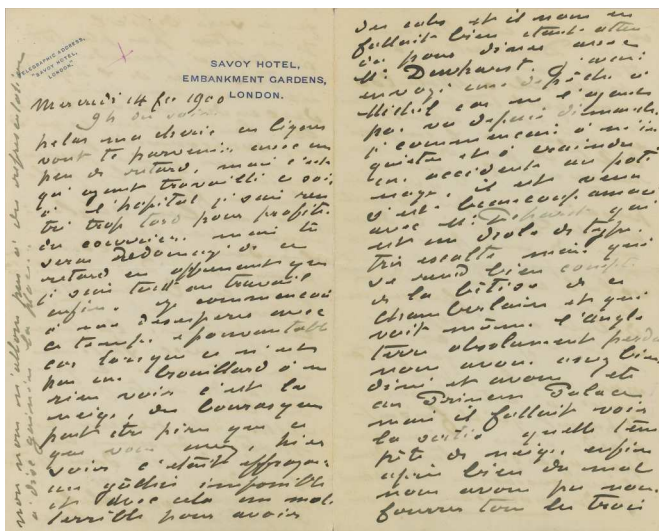 TELEGRAPHIC ADDRESS,
"SAVOY HOTEL,
LONDON."
SAVOY HOTEL,
EMBANKMENT GARDENS,
LONDON.
Mercredi 14 fev 1900
9h du soir
helas ma cherie ces lignes
vont te parvenir avec un
peu de retard, mais c'est
qu'ayant travaillé ce soir
à l'hôpital je suis ren
tré trop tard pour profiter
du courrier. mais tu
seras dédomagé de ce
retard en apprenant que
je suis tout au travail
enfin. je commencais
à me desesperer avec
ce temps épouvantable
car lorsque ce n'est
pas un brouillard à ne
rien voir c'est la
neige, des bourasques
peut etre pire que ce
que vous avez, hier
soir c'était effroyable
un gâchis impossible
et avec cela un mal
terrible pour avoir
des cabs et il nous en
fallait bien étant atten
du pour diner avec
Mr Dewhurst. J'avais
envoyé une dépêche à
Michel car ne l'ayant
pas vu depuis dimanche
je commencais à m'in
quieter et à craindre
un accident au pati
nage, il est venu
s'est beaucoup amusé
avec Mr Dehurst qui
est un drole de type.
très exalté mais qui
se rend bien compte
de la bêtise de ce
Chamberlain et qui
voit même l'Angle
terre absolument perdue
nous avons assez bien
diné et avons été
au Princess Palace
mais il fallait voir
la sortie quelle tem
pête de neige, enfin
après bien du mal
nous avons pu nous
fourrer tous les trois